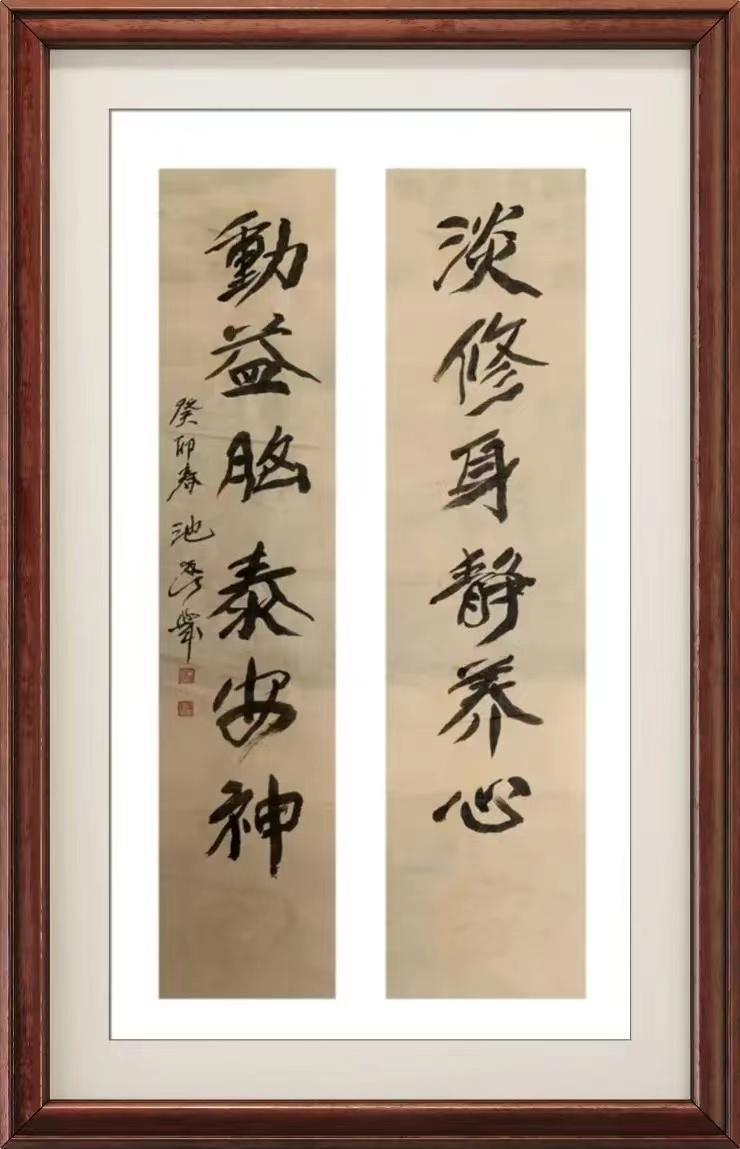 淡修身静养心
動益脑泰安神
癸卯春 池